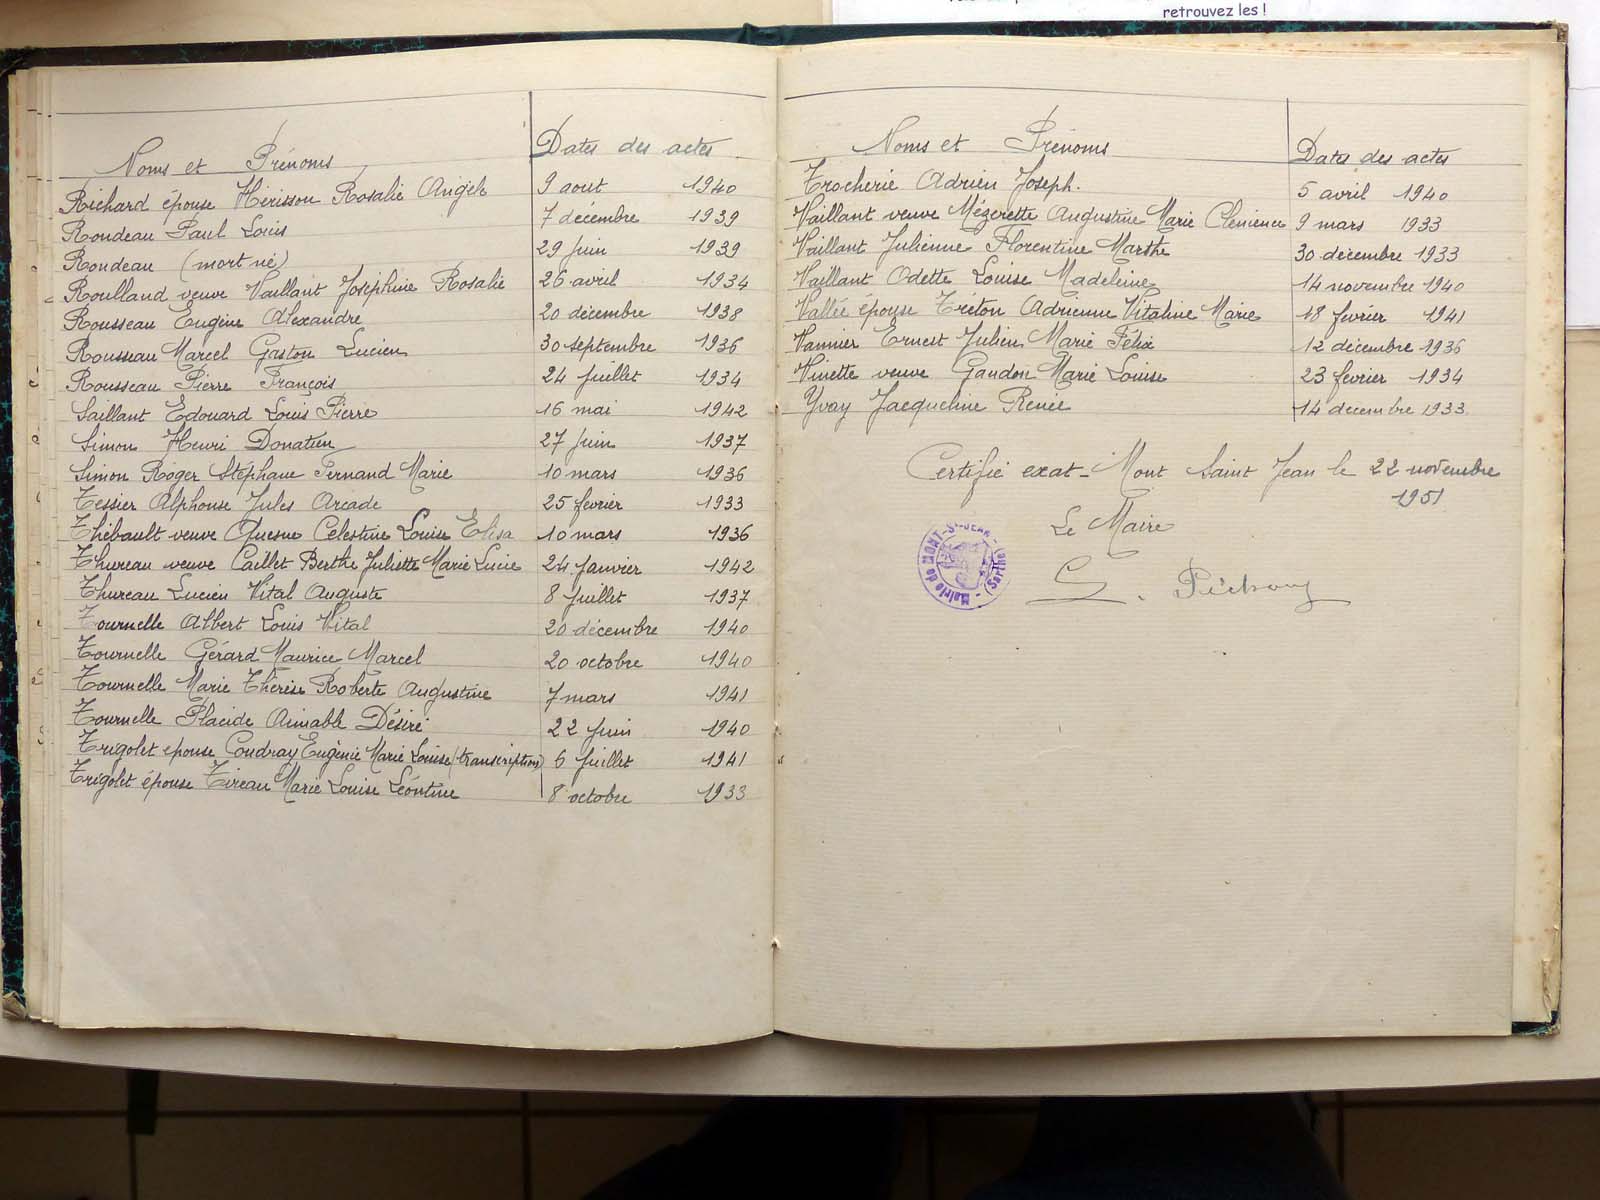 retrouvez les !
Noms et Prénoms Dates des actes
Richard épouse Hérisson Rosalie Angèle 9 aout 1940
Rondeau Paul Louis 7 décembre 1939
Rondeau (mort né) 29 juin 1939
Roulland veuve Vaillant Joséphine Rosalie 26 avril 1934
Rousseau Eugène Alexandre 20 décembre 1938
Rousseau Marcel Gaston Lucien 30 septembre 1936
Rousseau Pierre François 24 juillet 1934
Saillant Edouard Louis Pierre 16 mai 1942
Simon Henri Donatien 27 juin 1937
Simon Roger Stéphane Fernand Marie 10 mars 1936
Tessier Alphonse Jules Arcade 25 fevrier 1933
Thébault veuve Quesne Celestine Louise Elisa 10 mars 1936
Thureau veuve Caillet Berthe Juliette Marie Lucie 24 janvier 1942
Thureau Lucien Vital Auguste 8 juillet 1937
Tournelle Albert Louis Vital 20 décembre 1940
Tournelle Gérard Maurice Marcel 20 octobre 1940
Tournelle Marie Thérèse Roberte Augustine 7 mars 1941
Tournelle Placide Aimable Désiré 22 juin 1940
Trigolet epouse Coudray Eugènie Marie Louise (transcription) 6 juillet 1941
Trigolet épouse Tireau Marie Louise Léontine 8 octobre 1933
Noms et Prénoms Dates des actes
Trocherie Adrien Joseph. 5 avril 1940
Vaillant veuve Mézerette Augustine Marie Clémence 9 mars 1933
Vaillant Julienne Florentine Marthe 30 décembre 1933
Vaillant Odette Louise Madeleine 14 novembre 1940
Vallée épouse Tréton Adrienne Vitaline Marie 18 février 1941
Vannier Ernest Julien Marie Félix 12 décembre 1936
Vinette veuve Gandon Marie Louise 23 fevrier 1934
Yvay Jacqueline Renée 14 decembre 1933
Certifié exat - Mont Saint Jean le 22 novembre
1951
Le Maire
Mairie de MONT-St-JEAN - (Sarthe)